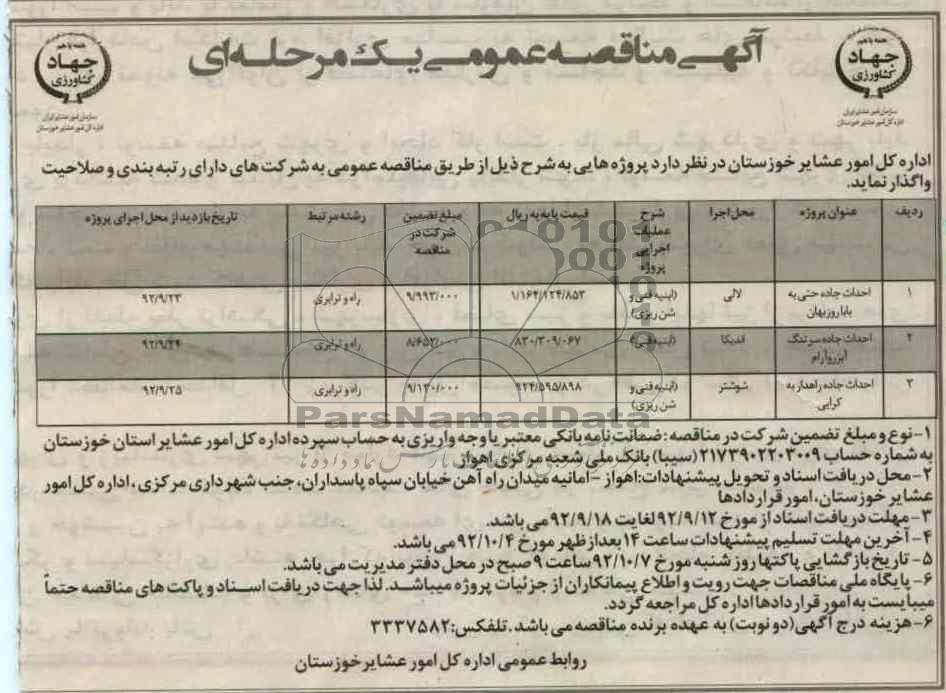 آگهی مناقصه عمومی یک مرحله ای
همه با هم
جهاد
کشاورزی
سازمان امور عشایر ایران
اداره کل امور عشایر خوزستان
همه با هم
جهاد
کشاورزی
سازمان امور عشایر ایران
اداره کل امور عشایر خوزستان
اداره کل امور عشایر خوزستان در نظر دارد پروژه هایی به شرح ذیل از طریق مناقصه عمومی به شرکت های دارای رتبه بندی و صلاحیت
واگذار نماید.
ردیف عنوان پروژه محل اجرا شرح عملیات اجرایی پروژه قیمت پایه به ریال مبلغ تضمین شرکت در مناقصه رشته مرتبط تاریخ بازدید از محل اجرای پروژه
۱ احداث جاده حتی به بابا روزبهان لالی (ابنیه فنی و شن ریزی) ۱/۱۶۴/۱۲۴/۸۵۳ ۹/۹۹۳/۰۰۰ راه و ترابری ۹۲/۹/۲۳
۲ احداث جاده سر تنگ آبزروآرام اندیکا (ابنیه فنی) ۸۳۰/۳۰۹/۰۶۷ ۸/۶۵۲/۰۰۰ راه و ترابری ۹۲/۹/۲۴
۳ احداث جاده راهدار به کرایی شوشتر (ابنیه فنی و شن ریزی) ۹۲۴/۵۹۵/۸۹۸ ۹/۱۳۰/۰۰۰ راه و ترابری ۹۲/۹/۲۵
ParsNamadData
۱-نوع و مبلغ تضمین شرکت در مناقصه: ضمانت نامه بانکی معتبر یا وجه واریزی به حساب سپرده اداره کل امور عشایر استان خوزستان
به شماره حساب ۲۱۷۳۹۰۲۲۰۳۰۰۹ (سیبا) بانک ملی شعبه مرکزی اهواز
۲-محل دریافت اسناد و تحویل پیشنهادات:اهواز -امانیه میدان راه آهن خیابان سپاه پاسداران، جنب شهرداری مرکزی، اداره کل امور
عشایر خوزستان، امور قراردادها
۳-مهلت دریافت اسناد از مورخ ۹۲/۹/۱۲ لغایت ۹۲/۹/۱۸ می باشد.
۴-آخرین مهلت تسلیم پیشنهادات ساعت ۱۴ بعداز ظهر مورخ ۹۲/۱۰/۴ می باشد.
۵-تاریخ بازگشایی پاکتها روز شنبه مورخ ۹۲/۱۰/۷ ساعت ۹ صبح در محل دفتر مدیریت می باشد.
۶-پایگاه ملی مناقصات جهت رویت و اطلاع پیمانکاران از جزئیات پروژه میباشد. لذا جهت دریافت اسناد و پاکت های مناقصه حتماً
میبایست به امور قراردادها اداره کل مراجعه گردد.
۶-هزینه درج آگهی(دو نوبت) به عهده برنده مناقصه می باشد. تلفکس:۳۳۳۷۵۸۲
روابط عمومی اداره کل امور عشایر خوزستان